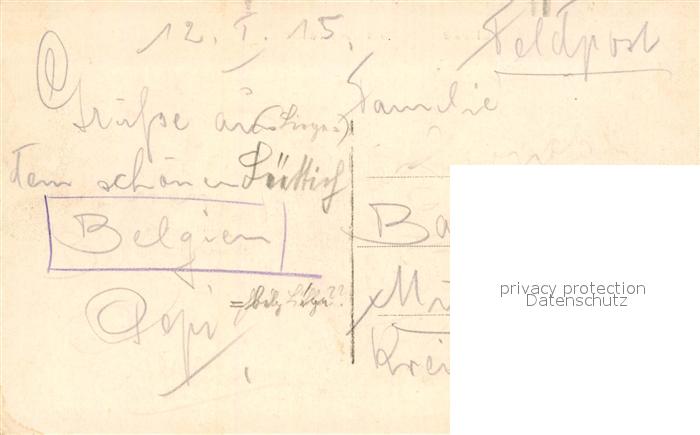 12. I. 15.
Feldpost
Grüße aus
dem schönen Lüttich
Belgien
Pepi
Familie
Ba
Mü
Krei
privacy protection
Datenschutz